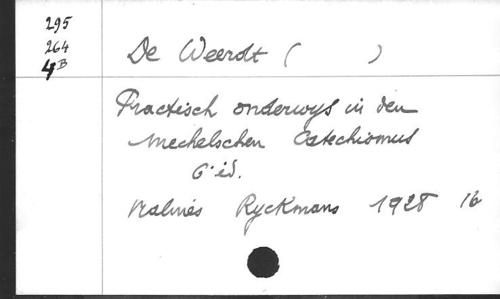 295
264
4B
De Weerdt ( )
Practisch onderwijs in den
Mechelschen Catechismus
6e ed.
Malines Ryckmans 1928 16